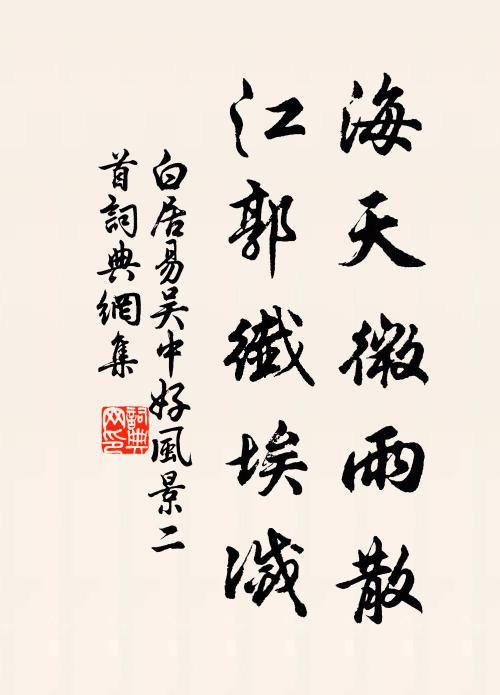 海天微雨散
江郭纖埃滅
白居易吳中好風景二
首詞典網集
詞典
网印